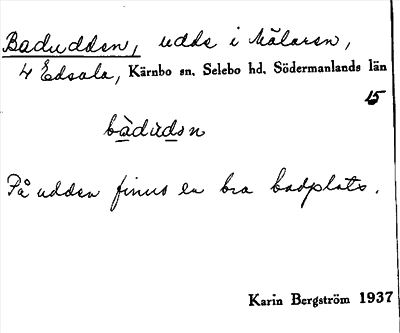 Badudden, udde i Mälaren,
4 Edsala, Kärnbo sn. Selebo hd. Södermanlands län
15
bàdùdɘn
På udden finns en bra badplats.
Karin Bergström 1937